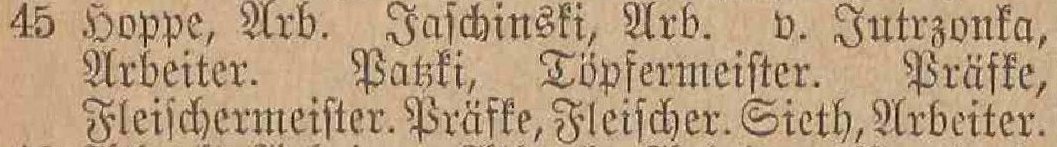 45 Hoppe, Arb. Jaschinski, Arb. v. Jutrzonka,
Arbeiter. Patzki, Töpfermeister. Präfke,
Fleischermeister. Präfke, Fleischer. Sieth, Arbeiter.